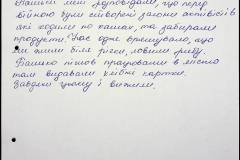 мені розповідали, що перед
війною були створені загони активістів
які ходили по хатах, та забирали
продукти. Нас одне врятувало, що
ми жили біля річки, ловили рибу.
Батько пішов працювати в місто
там видавали хлібні картки.
Завдяки цьому і вижили.